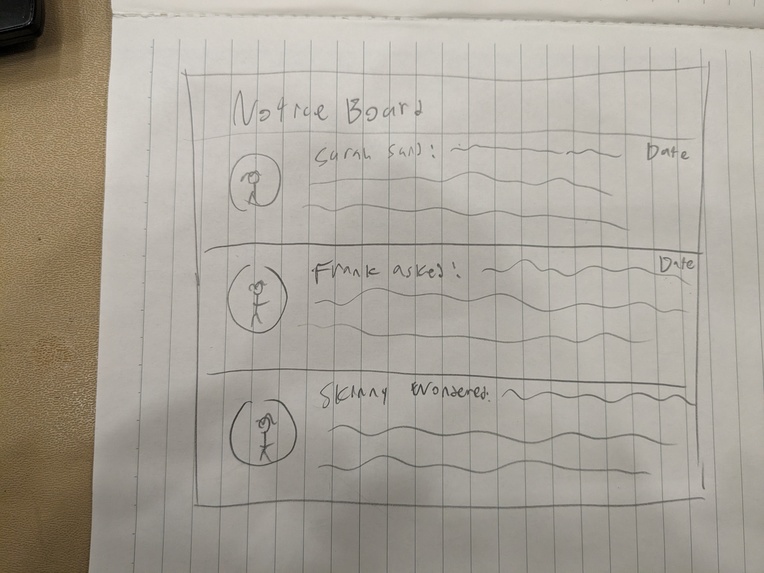 Notice Board
Sarah said:
Date
Frank asked:
Date
Skinny Wondered: